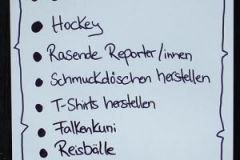 • Hockey
• Rasende Reporter/innen
• Schmuckdöschen herstellen
• T-Shirts herstellen
• Falkenkuni
• Reisbälle